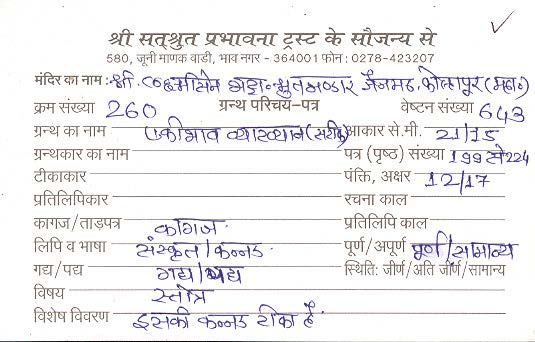 श्री सत्श्रुत प्रभावना ट्रस्ट के सौजन्य से
580, जूनी माणक वाडी, भाव नगर - 364001 फोन : 0278-423207
मंदिर का नाम : श्री लक्ष्मीसेन भट्टा. श्रुतभण्डार जैनमठ, कोल्हापुर (महा.)
क्रम संख्या 260 ग्रन्थ परिचय-पत्र वेष्टन संख्या 643
ग्रन्थ का नाम एकीभाव व्याख्यान (सटीक) आकार से.मी. 21/15
ग्रन्थकार का नाम पत्र (पृष्ठ) संख्या 199 से 224
टीकाकार पंक्ति, अक्षर 12/17
प्रतिलिपिकार रचना काल
कागज/ताड़पत्र कागज प्रतिलिपि काल
लिपि व भाषा संस्कृत/कन्नड पूर्ण/अपूर्ण पूर्ण/सामान्य
गद्य/पद्य गद्य/पद्य स्थिति: जीर्ण/अति जीर्ण/सामान्य
विषय स्तोत्र
विशेष विवरण इसकी कन्नड टीका है